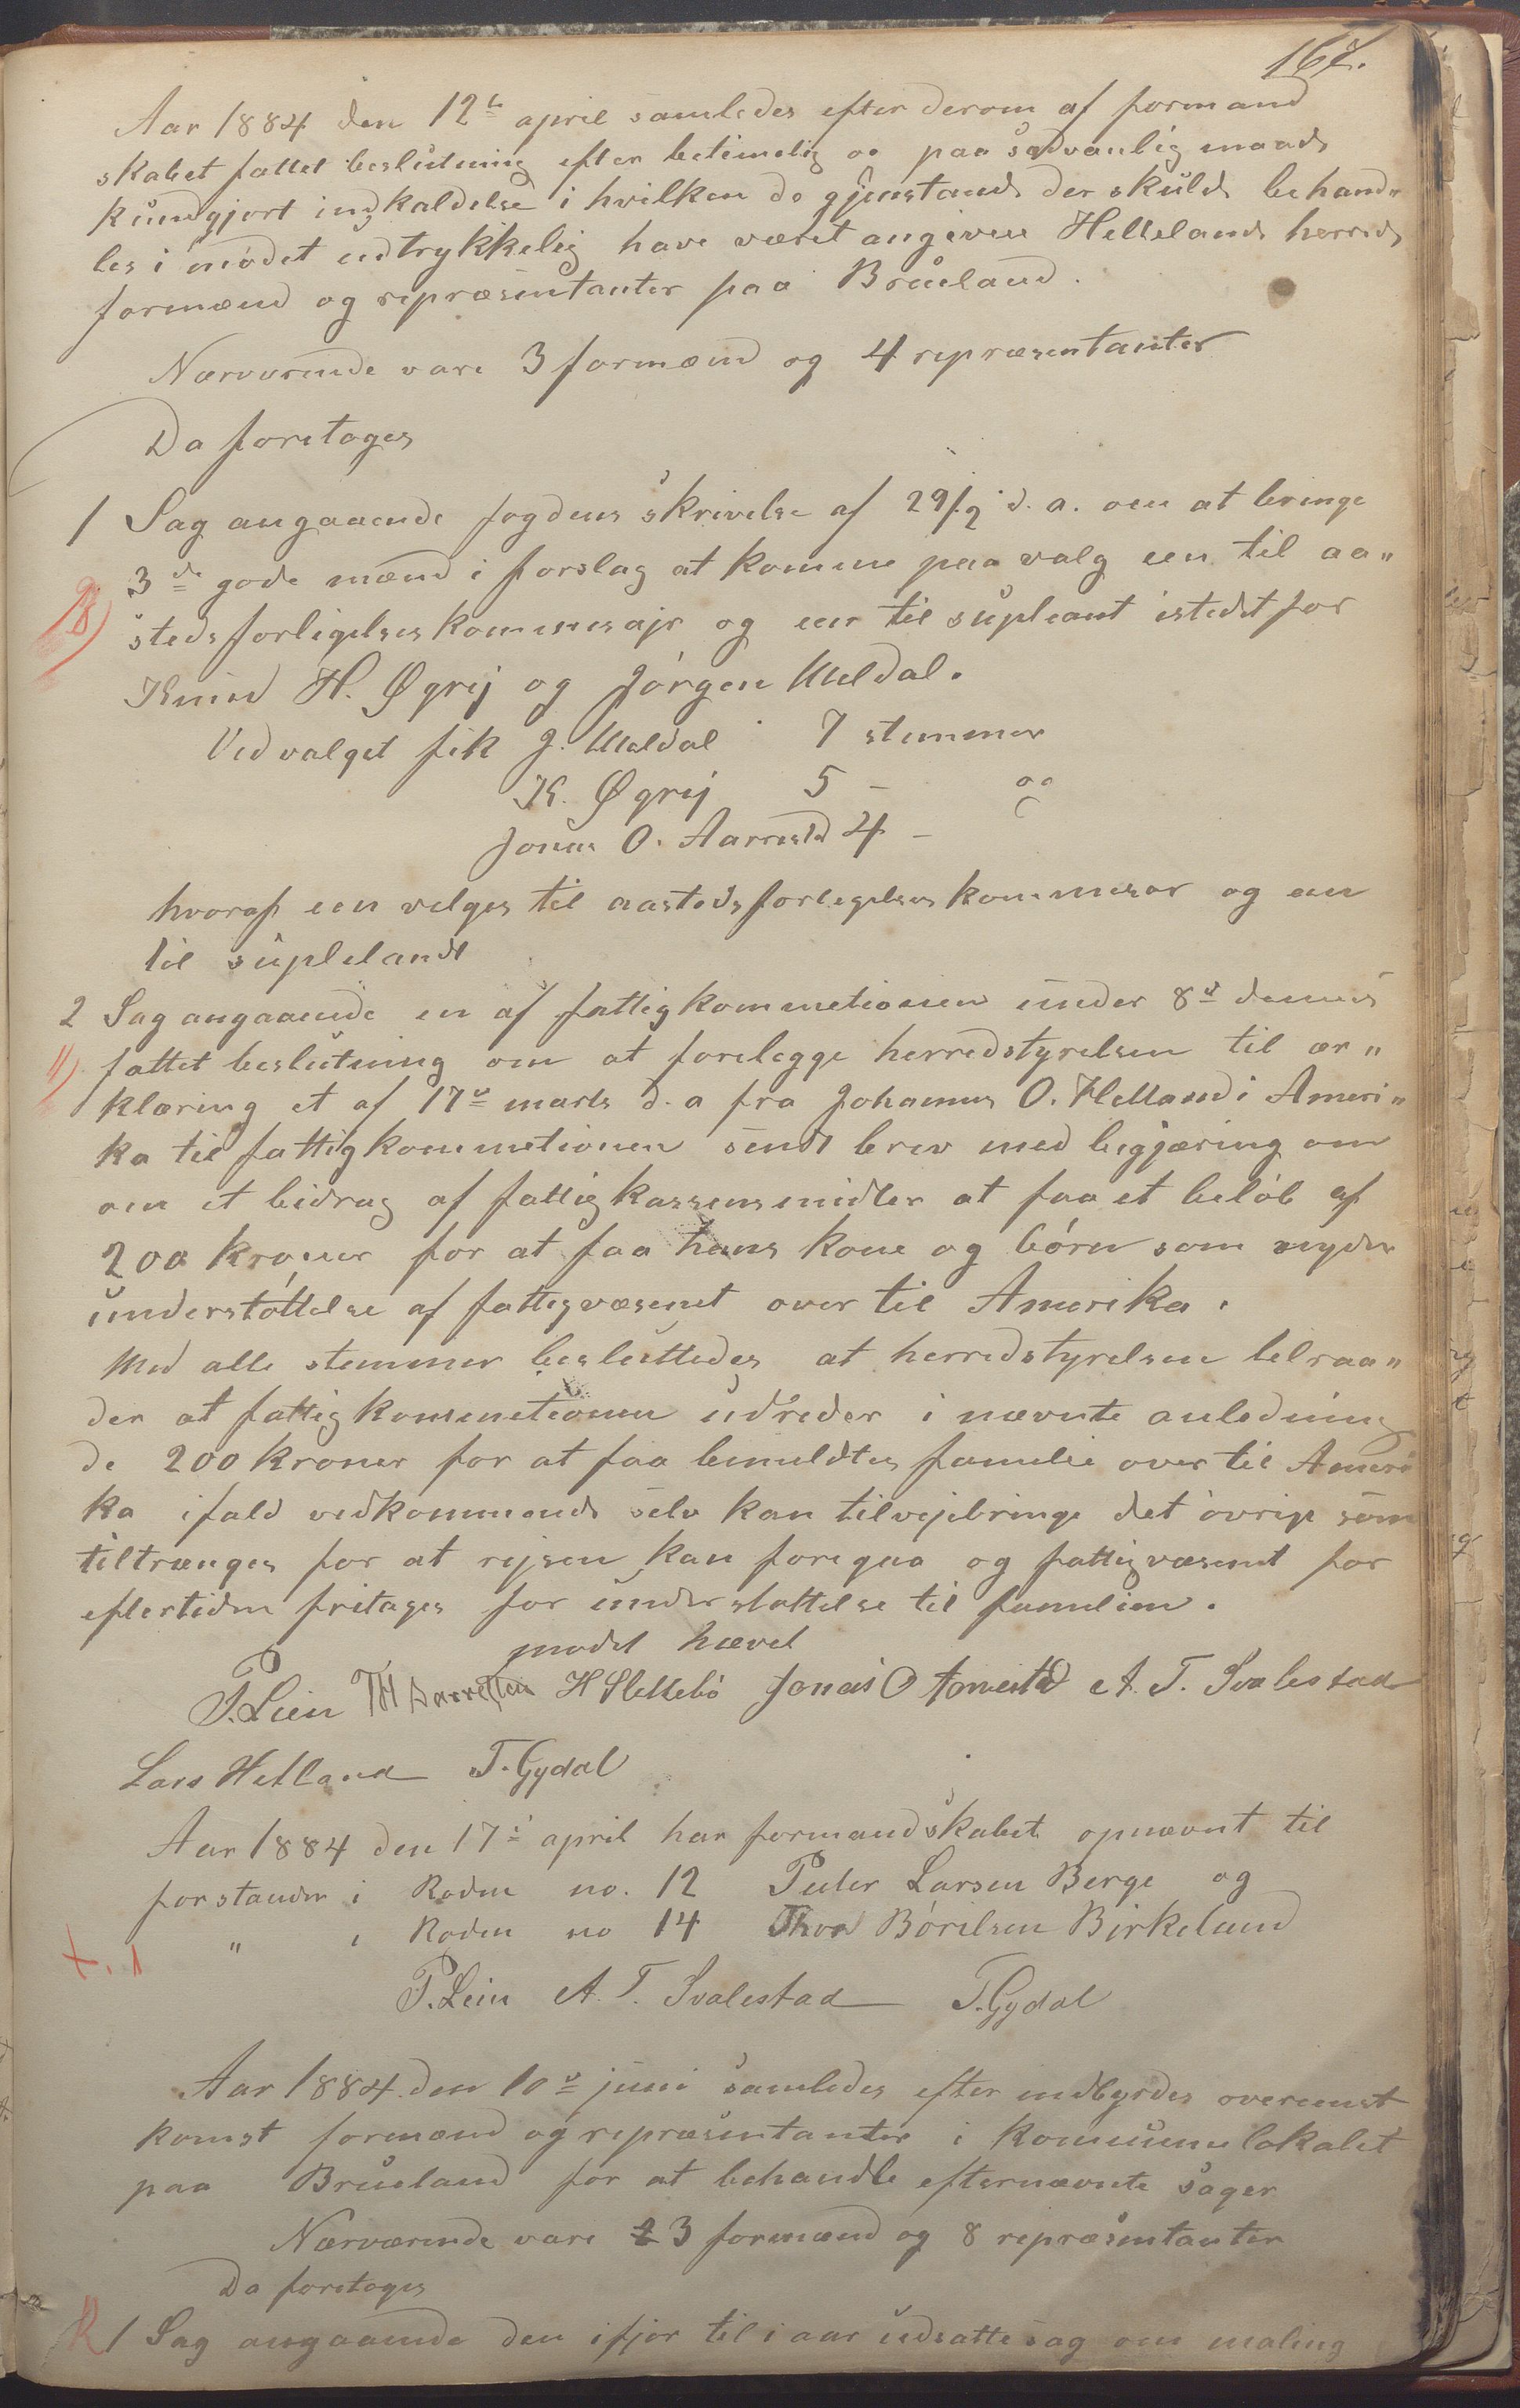 Aar 1884 den 12te april samledes efter derom af formand
skabet fattet beslutning efter betimelig og paa sædvanlig maade
kundgjort indkaldelse i hvilken de gjenstande der skulde behand„
les i mødet udtrykkelig have været angivene Hellelands herreds
formænd og repræsentanter paa Brueland.
Nærværende vare 3 formænd og 4 repræsentanter
Da foretoges
1 Sag angaaende fogdens skrivelse af 29/2 d. a. om at bringe
3de gode mænd i forslag at komme paa valg een til aa„
stedsforligelseskommesajr og een til supleant istedetfor
Knud H. Øgrej og Jørgen Meldal.
Ved valget fik J. Meldal 7 stemmer
K. Øgrej 5 – og
Jonas O. Aarrestd 4 –
hvoraf een velges til aastedsforlegelseskommesar og een
til supleland
2 Sag angaaende en af fattigkommetionen under 8d dennes
11) fattet beslutning om at forelegge herredstyrelsen til ær„
klæring et af 17de marts d. a fra Johannes O. Helland i Ameri„
ka til fattigkommetionen sendt brev med begjæring om
om et bidrag af fattigkassens midler at faa et beløb af
200 kroner for at faa hans kone og børn som nyder
understøttelse af fattigvæsenet over til Amerika.
Med alle stemmer besluttedes at herredstyrelsen telraa„
der at fattigkommetionen udreder i nævnte anledning
de 200 kroner for at faa bemeldtes familie over til Ameri
ka ifald vedkommende selv kan tilvejebringe det øvrige som
tiltrænges for at rejsen kan foregaa og fattigvæsenet for
eftertiden fritages for understøttelse til familien.
mødet hævet
P. Lein TH Aarrestad H Slettebø Jonas O Aarrestad A. T. Svalestad
Lars Helland T. Gydal
Aar 1884 den 17de april har formandskabet opnævnt til
forstander i Roden no. 12 Peder Larsen Berge og
+. 1 „ i Roden no 14 Thore Børilsen Birkeland
P. Lein A. T. Svalestad T. Gydal
Aar 1884 den 10de juni samledes efter indbyrdes overenst
komst formænd og repræsentanter i kommunelokalet
paa Brueland for at behandle efternævnte sager
Nærværende vare 3 formænd og 8 repræsentanter
Da foretoges
1 Sag angaaende den ifjor til i aar udsatte sag om maling